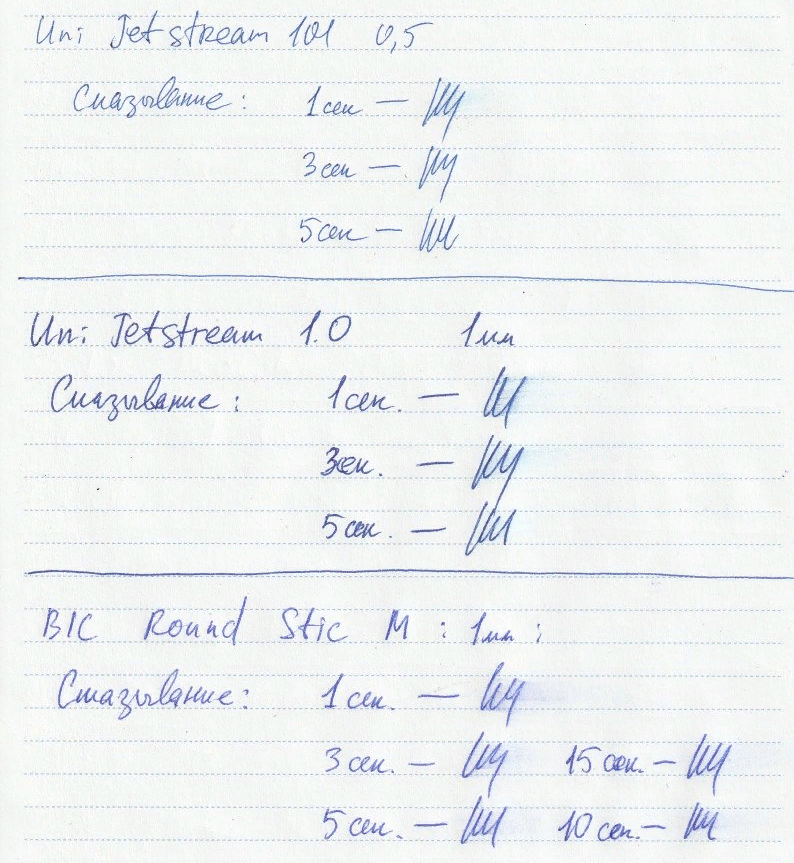 Uni Jetstream 101 0,5
Смазывание: 1 сек —
3 сек —
5 сек —
Uni Jetstream 1.0 1 мм
Смазывание: 1 сек. —
3 сек. —
5 сек. —
BIC Round Stic M : 1 мм :
Смазывание: 1 сек. —
3 сек. — 15 сек. —
5 сек. — 10 сек. —